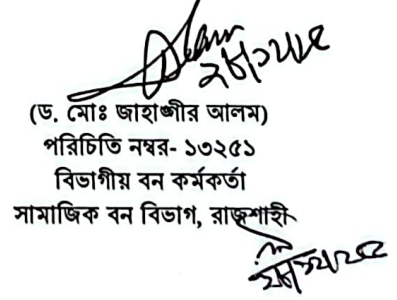 (ড. মোঃ জাহাঙ্গীর আলম)
পরিচিতি নম্বর- ১৩২৫১
বিভাগীয় বন কর্মকর্তা
সামাজিক বন বিভাগ, রাজশাহী